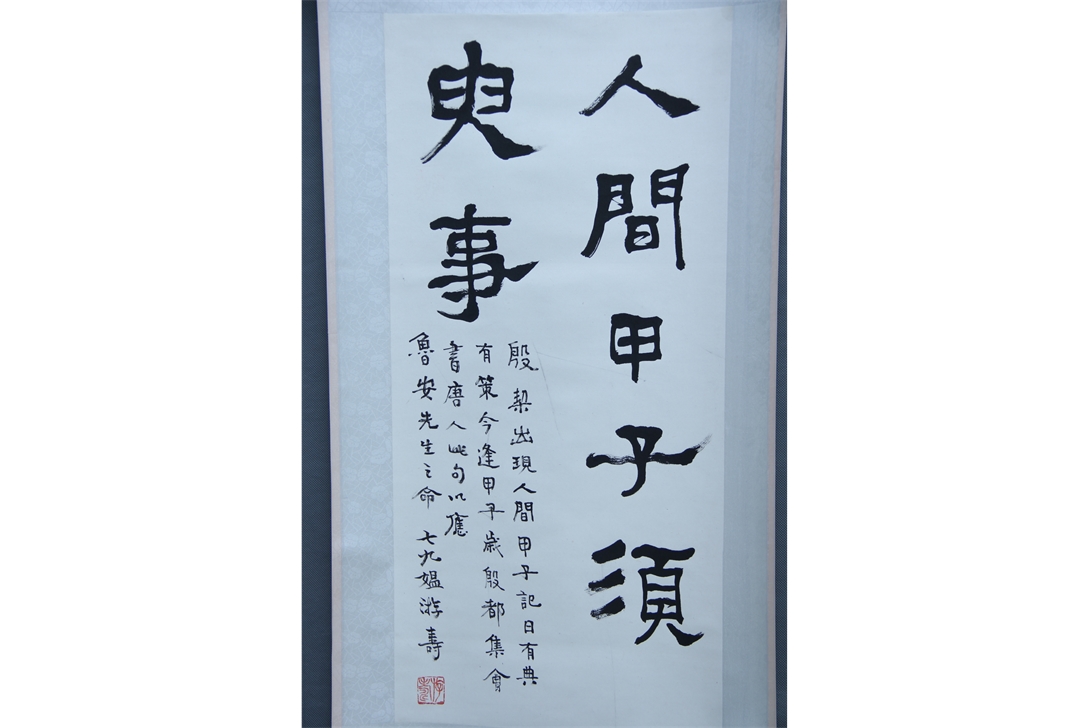 人間甲子須
臾事
殷栔出現人間甲子記日有典
有策今逢甲子歲殷都集會
書唐人此句以應
魯安先生之命 七九媪游壽
游壽